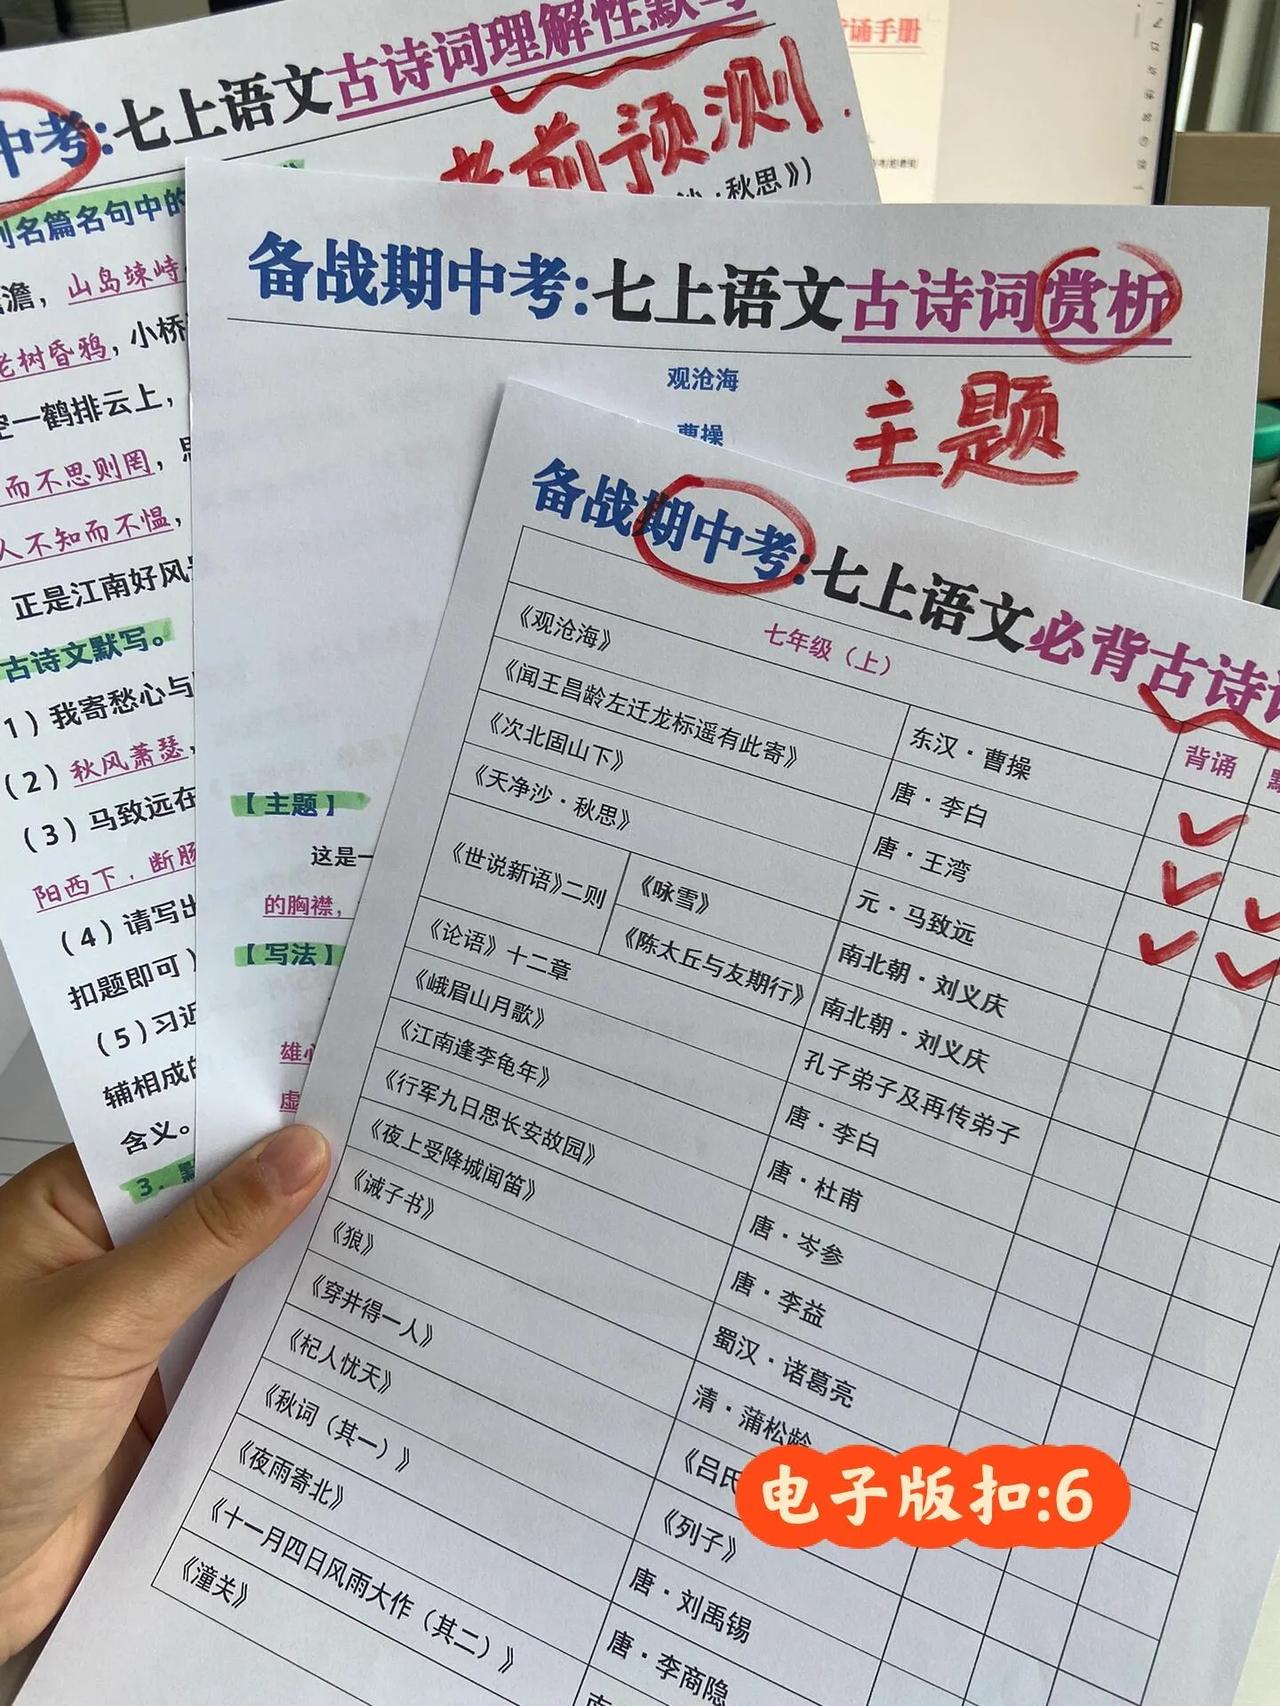 诵手册
中考:七上语文古诗词理解性默写
考前预测
列名篇名句中的
沙·秋思》）
澹，山岛竦峙
老树昏鸦，小桥
空一鹤排云上，
而不思则罔，思
人不知而不愠，
正是江南好风景
古诗文默写。
1）我寄愁心与
（2）秋风萧瑟，
（3）马致远在
阳西下，断肠
（4）请写出
扣题即可）
（5）习近
辅相成的
含义。
3．
备战期中考:七上语文古诗词赏析
观沧海
曹操
主题
【主题】
这是一
的胸襟，
【写法】
雄心
虚
备战期中考:七上语文必背古诗词
七年级（上） 背诵 默
《观沧海》 东汉·曹操
《闻王昌龄左迁龙标遥有此寄》 唐·李白
《次北固山下》 唐·王湾
《天净沙·秋思》 元·马致远
《世说新语》二则 《咏雪》 南北朝·刘义庆
《陈太丘与友期行》 南北朝·刘义庆
《论语》十二章 孔子弟子及再传弟子
《峨眉山月歌》 唐·李白
《江南逢李龟年》 唐·杜甫
《行军九日思长安故园》 唐·岑参
《夜上受降城闻笛》 唐·李益
《诫子书》 蜀汉·诸葛亮
《狼》 清·蒲松龄
《穿井得一人》 《吕氏
《杞人忧天》 《列子》
《秋词（其一）》 唐·刘禹锡
《夜雨寄北》 唐·李商隐
《十一月四日风雨大作（其二）》 南
《潼关》
电子版扣:6